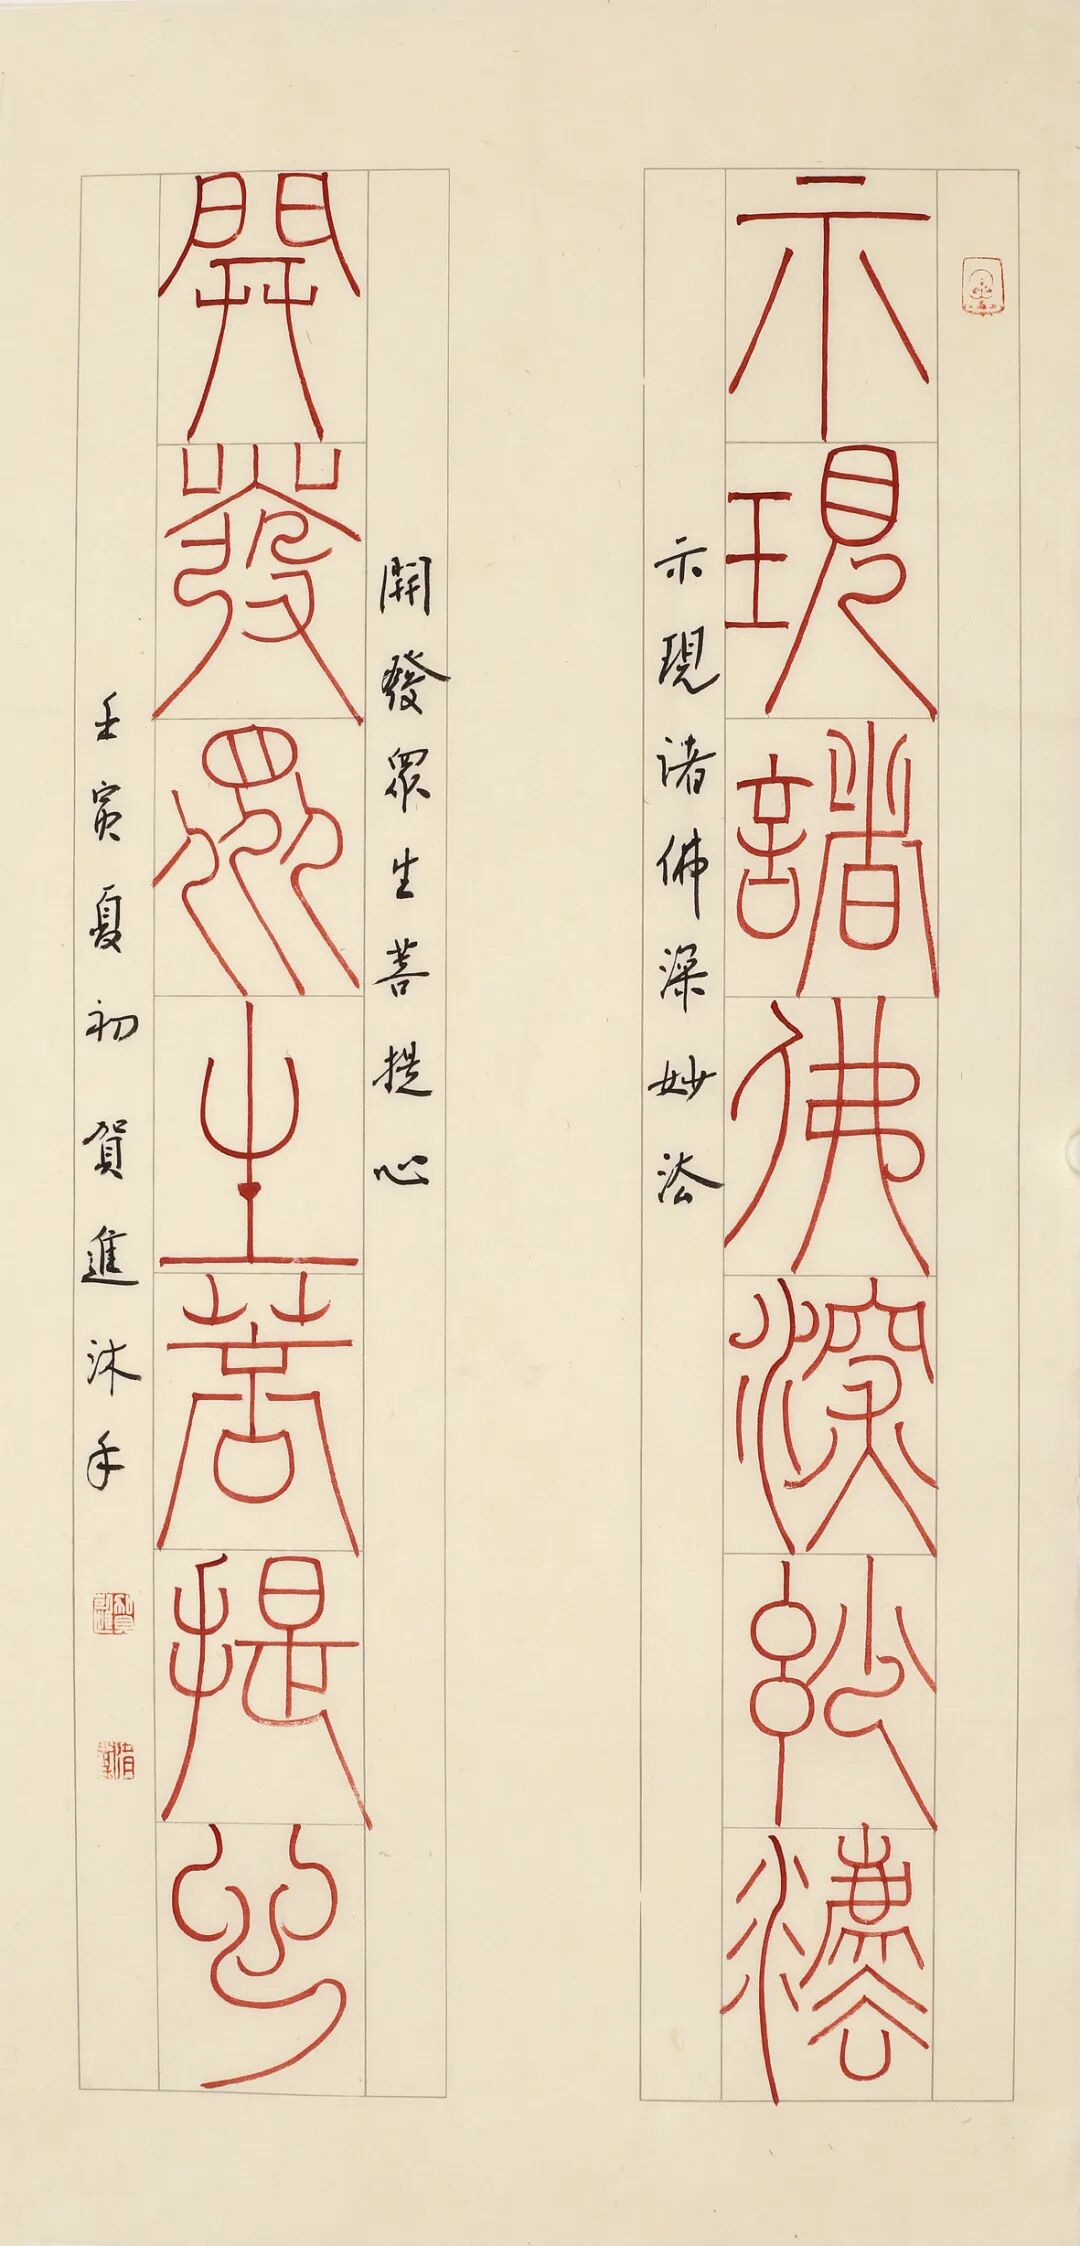 示現諸佛深妙法
示現诸佛深妙法
開發眾生菩提心
開發眾生菩提心
壬寅夏初賀進沐手